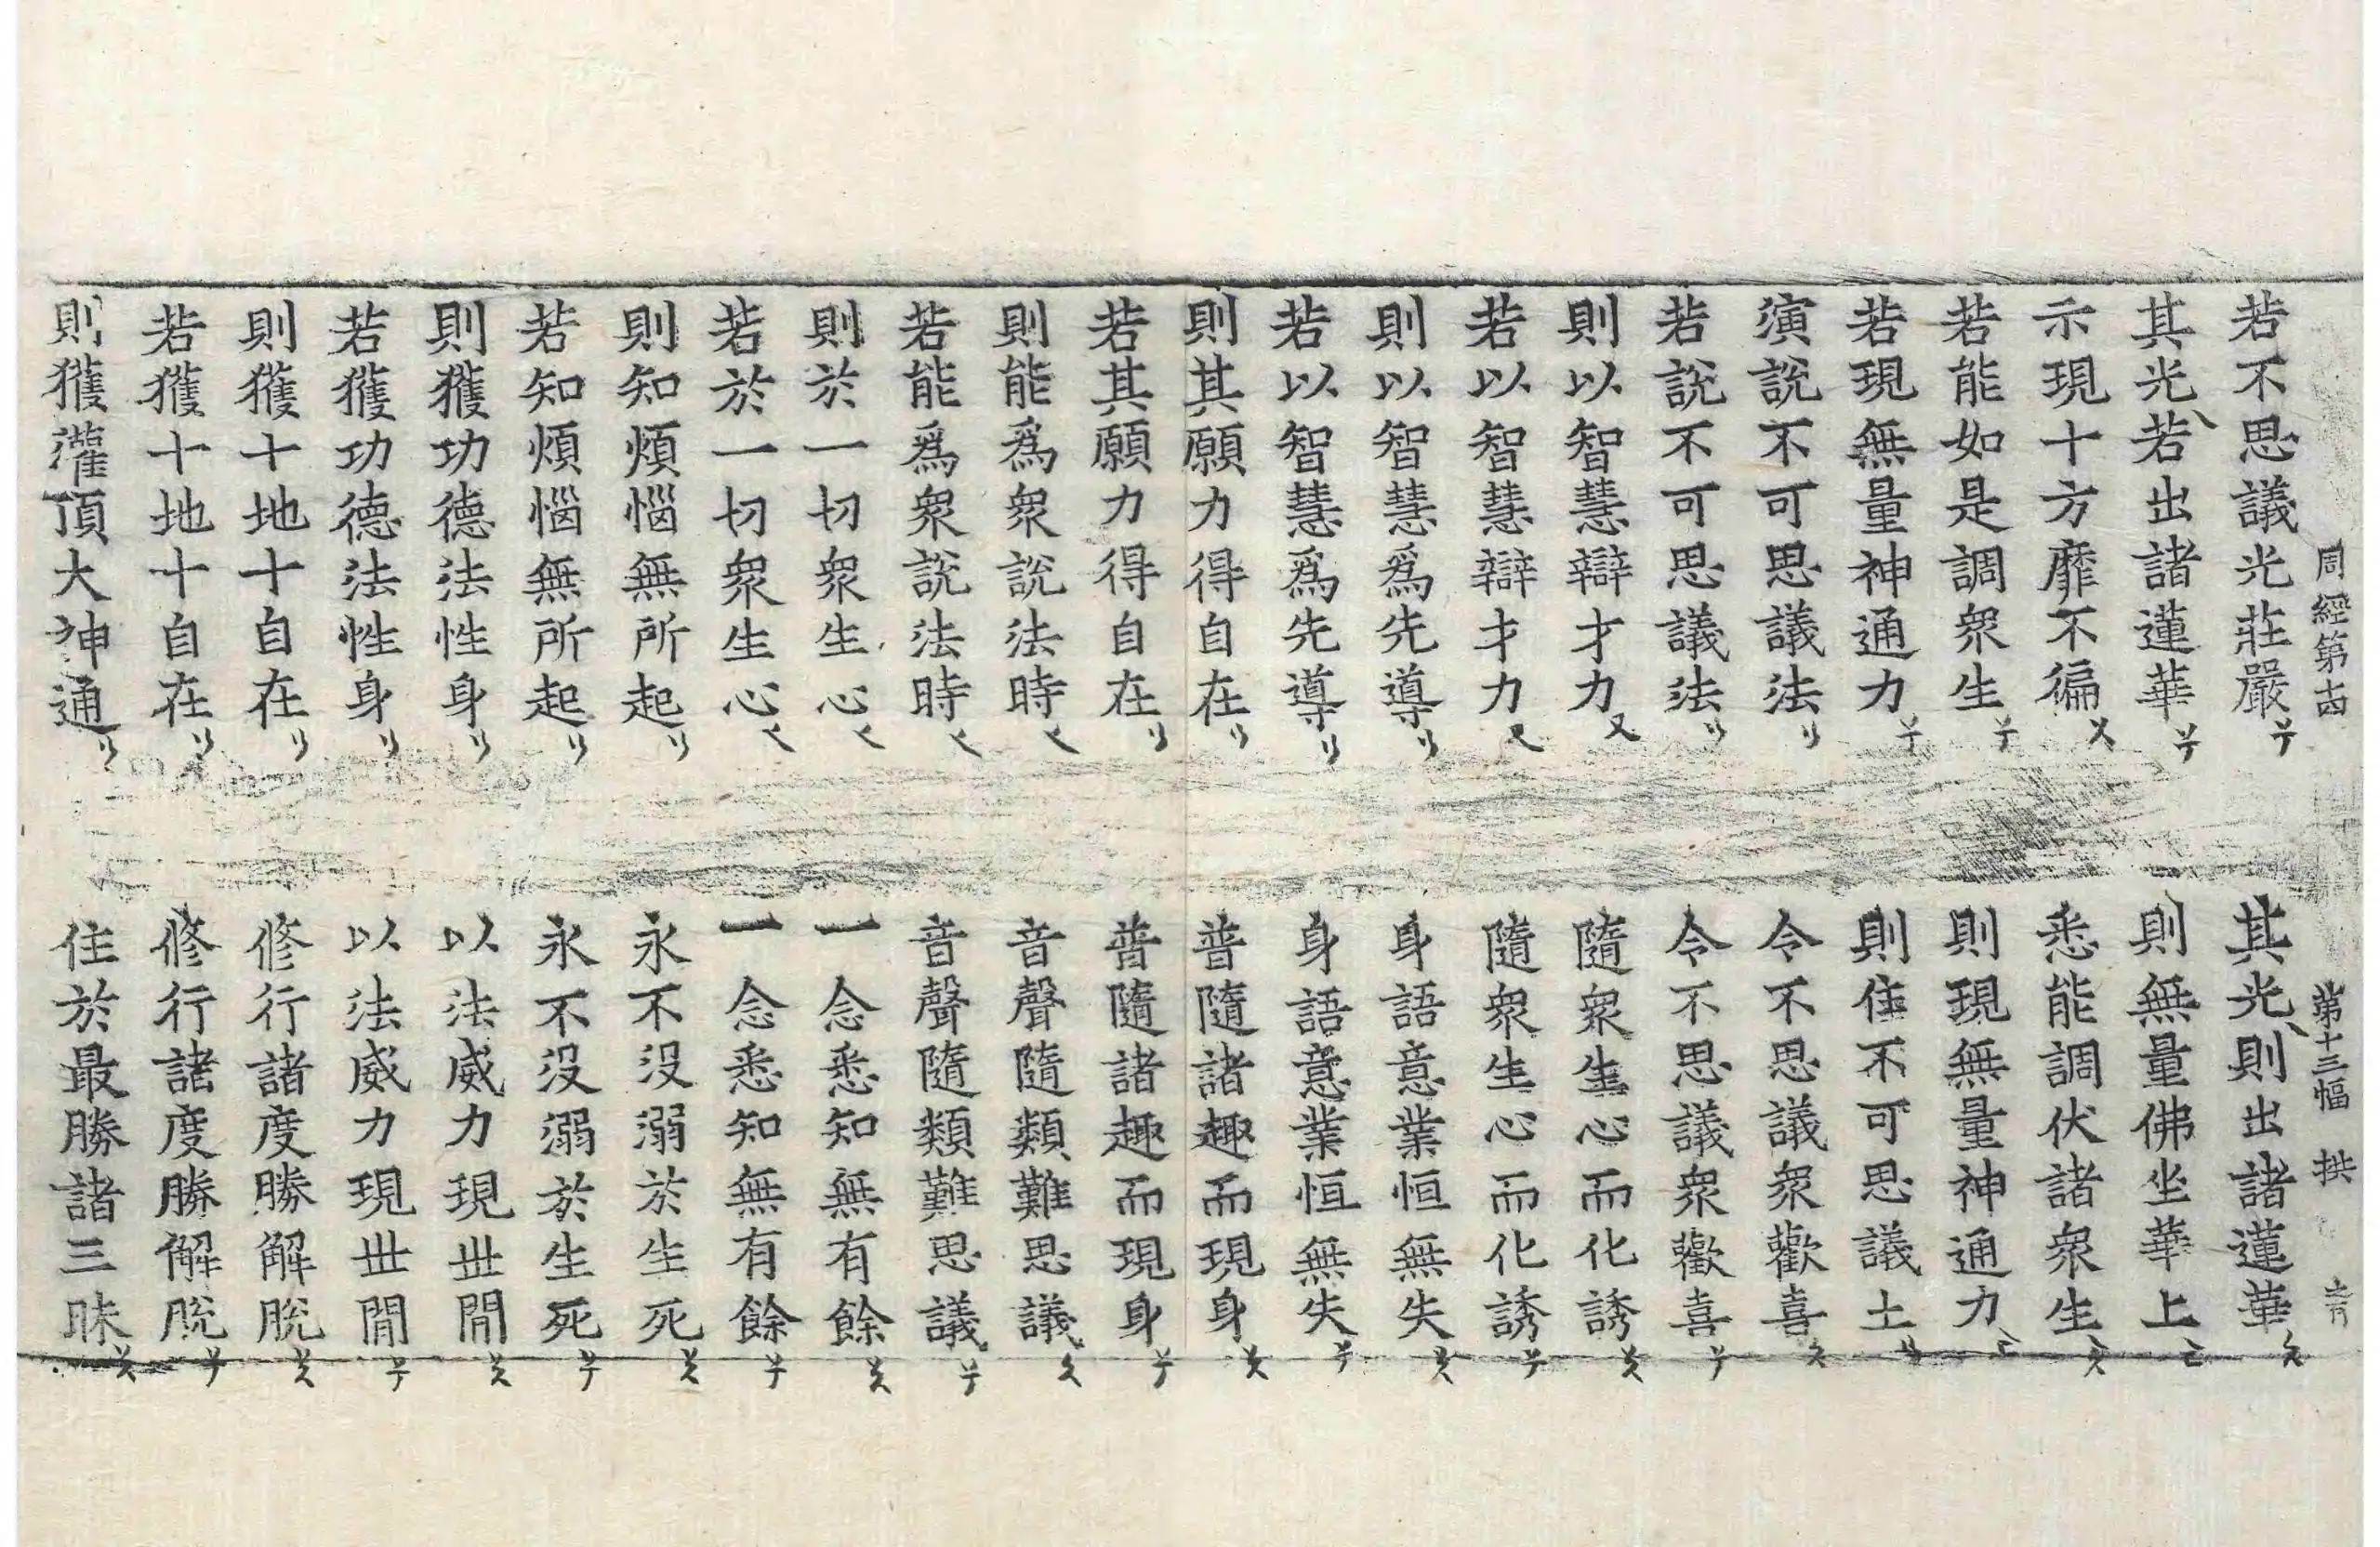 周經第十四 第十三幅 拱
若不思議光莊嚴 其光則出諸蓮華
其光若出諸蓮華 則無量佛坐華上
示現十方靡不徧 悉能調伏諸衆生
若能如是調衆生 則現無量神通力
若現無量神通力 則住不可思議土
演說不可思議法 令不思議衆歡喜
若說不可思議法 令不思議衆歡喜
則以智慧辯才力 隨衆生心而化誘
若以智慧辯才力 隨衆生心而化誘
則以智慧爲先導 身語意業恒無失
若以智慧爲先導 身語意業恒無失
則其願力得自在 普隨諸趣而現身
若其願力得自在 普隨諸趣而現身
則能爲衆說法時 音聲隨類難思議
若能爲衆說法時 音聲隨類難思議
則於一切衆生心 一念悉知無有餘
若於一切衆生心 一念悉知無有餘
則知煩惱無所起 永不没溺於生死
若知煩惱無所起 永不没溺於生死
則獲功德法性身 以法威力現丗間
若獲功德法性身 以法威力現丗間
則獲十地十自在 修行諸度勝解脫
若獲十地十自在 修行諸度勝解脫
則獲灌頂大神通 住於最勝諸三昧